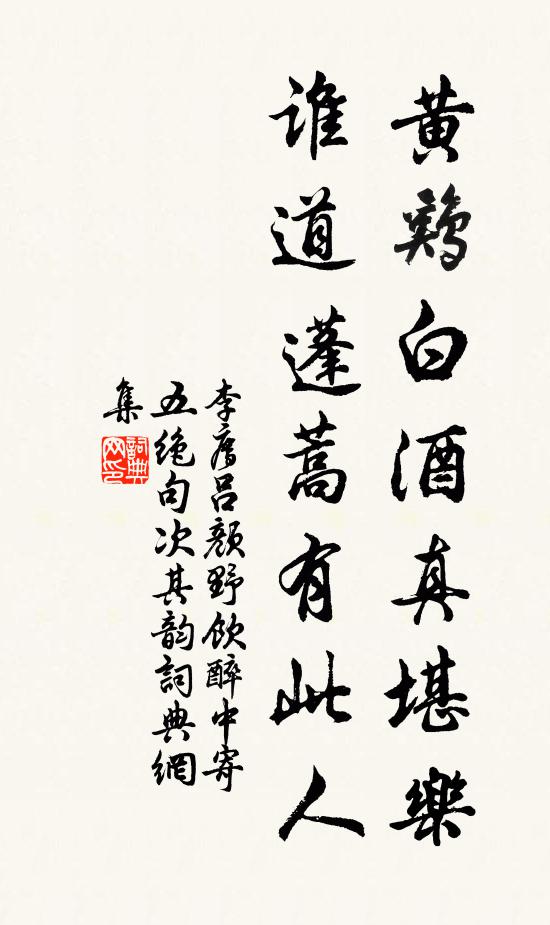 黄鷄白酒真堪樂
誰道蓬蒿有此人
李膺吕顔野飲醉中寄
五絶句次其韵詞典網
集
詞典
网印